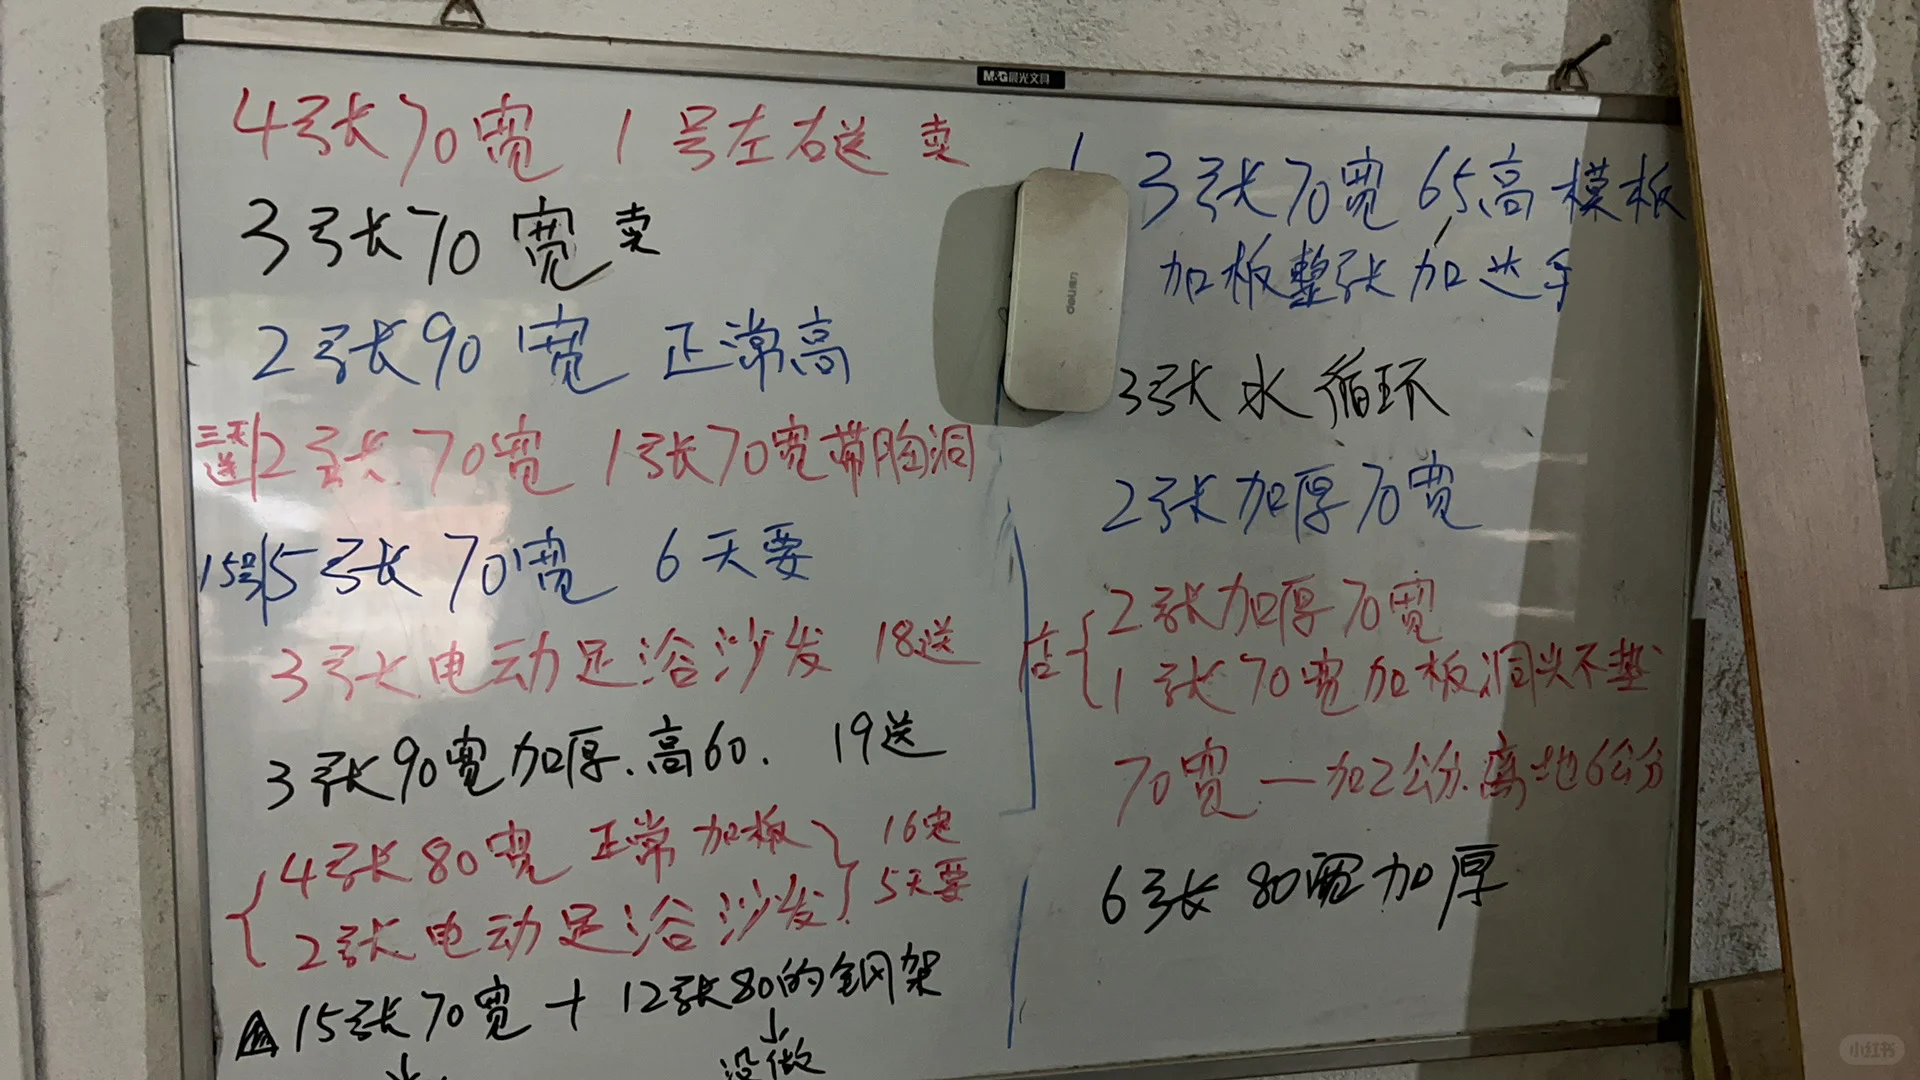 M&G晨光文具
4张70宽 1号左右送 卖
3张70宽 卖
2张90宽 正常高
三天送 2张70宽 1张70宽带胸洞
15号 5张70宽 6天要
3张电动足浴沙发 18送
3张90宽加厚.高60. 19送
4张80宽 正常加板
2张电动足浴沙发
16定
5天要
15张70宽+12张80的钢架
没做
deli
3张70宽 65高模板
加板整张加
3张水循环
2张加厚70宽
2张加厚70宽
1张70宽加板洞头不垫
70宽一加2公分.离地6公分
6张80宽加厚
小红书